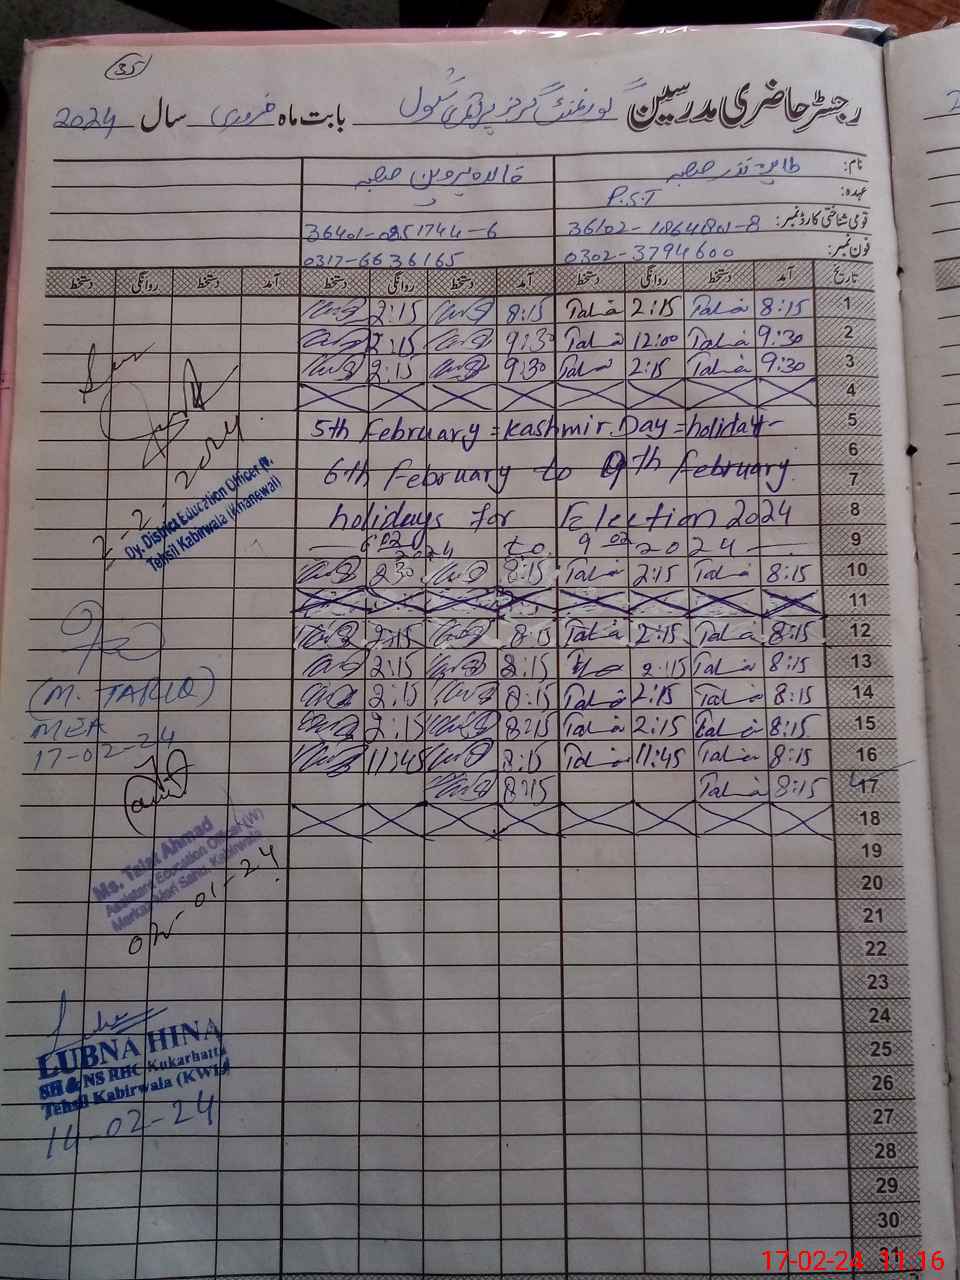 35
رجسٹر حاضری مدرسین گورنمنٹ گرلز پرائمری سکول بابت ماہ فروری سال 2024
نام: طاہرہ نذر صاحبہ خالدہ پروین صاحبہ
عہدہ: P.S.T
قومی شناختی کارڈ نمبر: 36102-1864801-8 36401-0851744-6
فون نمبر: 0302-3794600 0317-6636165
تاریخ آمد دستخط روانگی دستخط آمد دستخط روانگی دستخط آمد دستخط روانگی دستخط
1 8:15 Tahira 2:15 Tahira 8:15 2:15
2 9:30 Tahira 12:00 Tahira 9:30 2:15
3 9:30 Tahira 2:15 Tahira 9:30 2:15
4
5 5th February = Kashmir Day = holiday
6
7 6th February to 9th February
8 holidays for Election 2024
9 6 02 2024 to 9 02 2024
10 8:15 Tahira 2:15 Tahira 8:15 2:30
11
12 8:15 Tahira 2:15 Tahira 8:15 2:15
13 8:15 Tahira 2:15 8:15 2:15
14 8:15 Tahira 2:15 Tahira 8:15 2:15
15 8:15 Tahira 2:15 Tahira 8:15 2:15
16 8:15 Tahira 11:45 Tahira 8:15 11:45
17 8:15 Tahira 8:15
18
19
20
21
22
23
24
25
26
27
28
29
30
31
2-2-2024
Dy. District Education Officer (W)
Tehsil Kabirwala (Khanewal)
(M. TARIQ)
MEA
17-02-24
Ms. Talat Ahmad
Assistant Education Officer (W)
Kabirwala
01-24
LUBNA HINA
SH & NS RHC Kukarhatta
Tehsil Kabirwala (KWL)
14-02-24
17-02-24 11:16